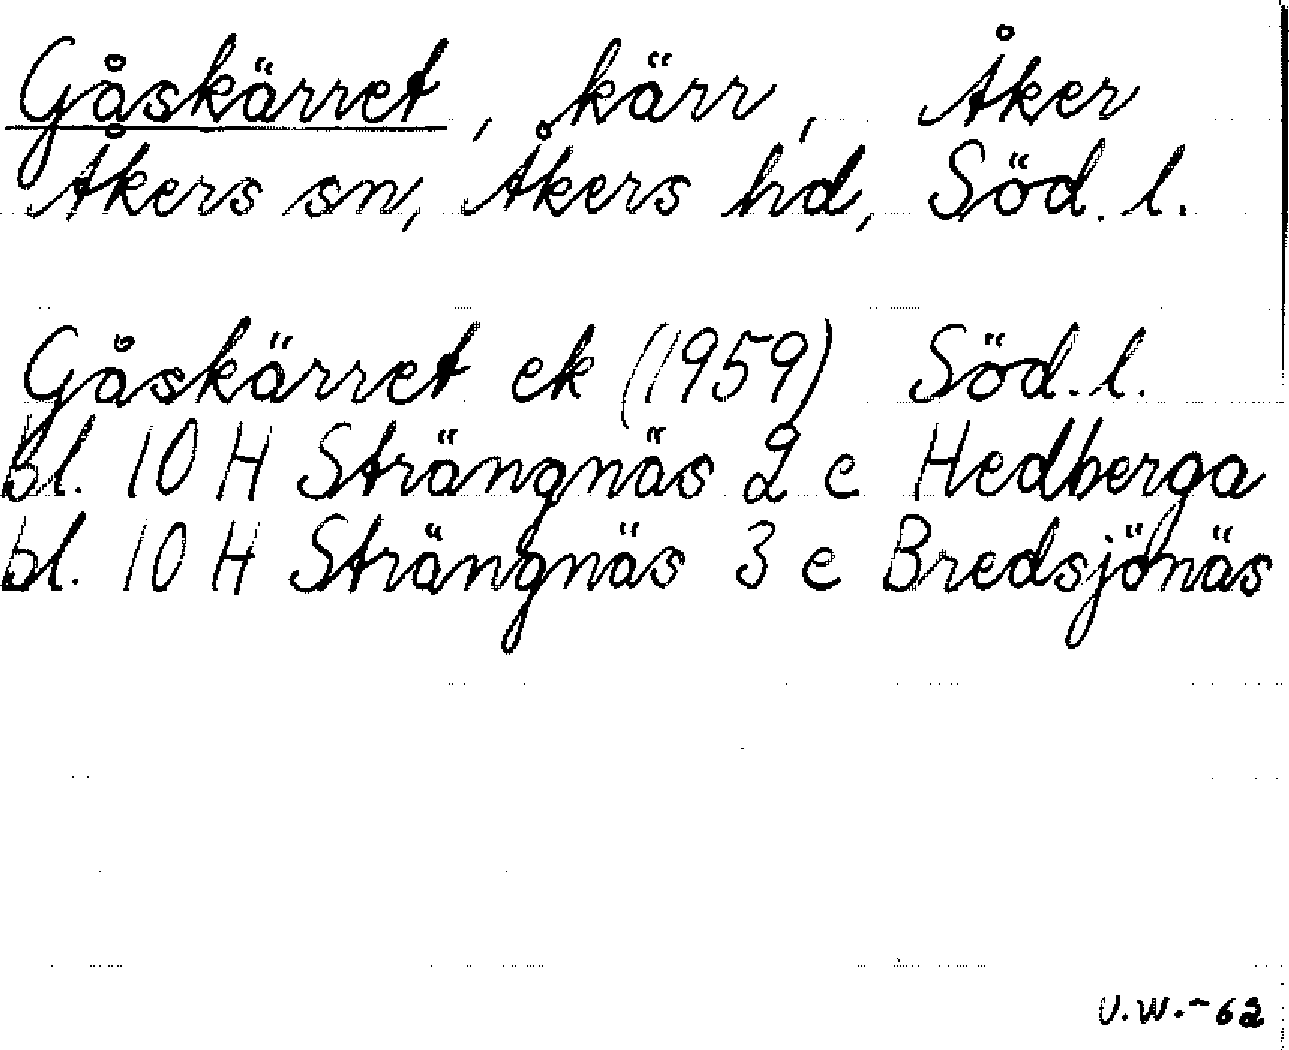 Gåskärret, kärr, Åker
Åkers sn, Åkers hd, Söd. l.
Gåskärret ek (1959) Söd. l.
bl. 10 H Strängnäs 2 c Hedberga
bl. 10 H Strängnäs 3 c Bredsjönäs
U.W.-62